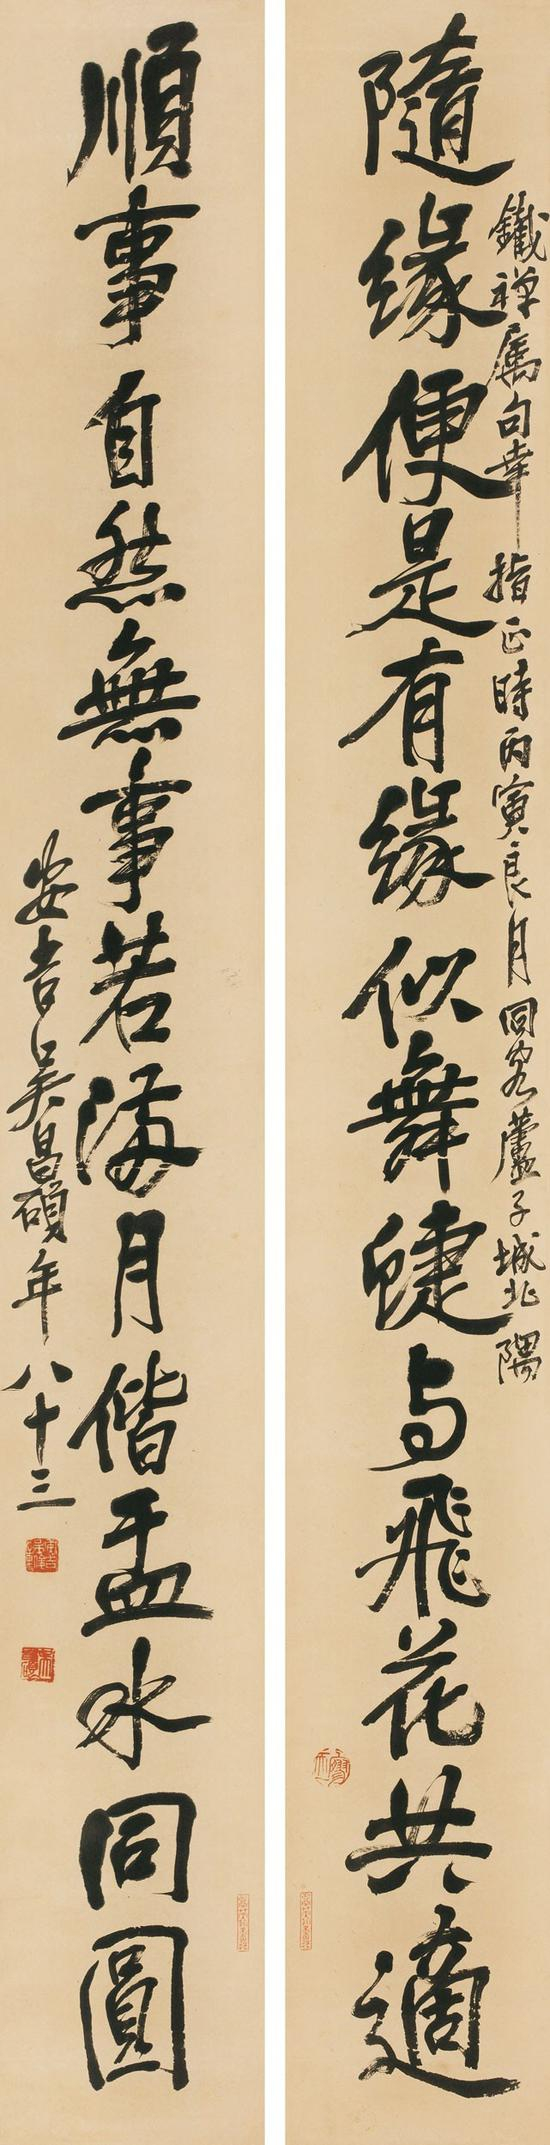 鐵禅属句幸指正時丙寅良月同客蘆子城北隅
隨緣便是有緣似舞蜨与飛花共適
順事自然無事若滿月偕盂水同圓
安吉吳昌碩年八十三